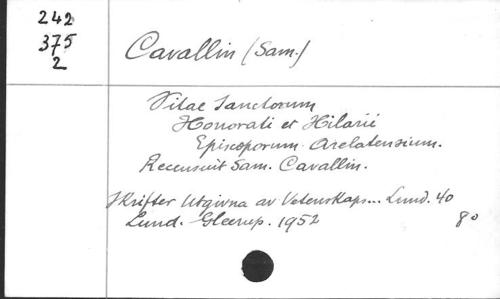 242
375
2
Cavallin (Sam.)
Vitae Sanctorum
Honorati et Hilarii
Episcoporum Arelatensium.
Recensuit Sam. Cavallin.
Skrifter utgivna av Vetenskaps... Lund. 40
Lund. Gleerup. 1952
8o